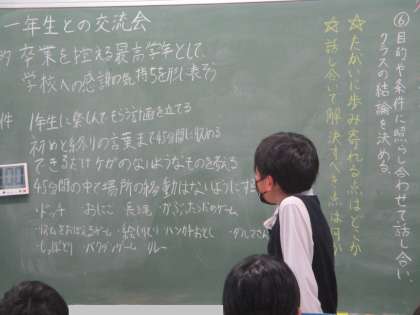 ⑥目的や条件に照らし合わせて話し合い、
クラスの結論を決める。
☆たがいに歩みよれる点はどこか
☆話し合いで解決すべき点は何か
一年生との交流会
的 卒業を控える最高学年として、
学校への感謝の気持ちを形に表そう
件 1年生に楽しんでもらう計画を立てる
初めと終りの言葉まで45分間に収める
できるだけケガのないようなものを考える
45分間の中で場所の移動はないようにする
・ドッヂ おにごこ
ゲーム ・絵しりとり ・ハンカチおとし ・ダルマさん
・しっぽとり ・バクダンゲーム リレー